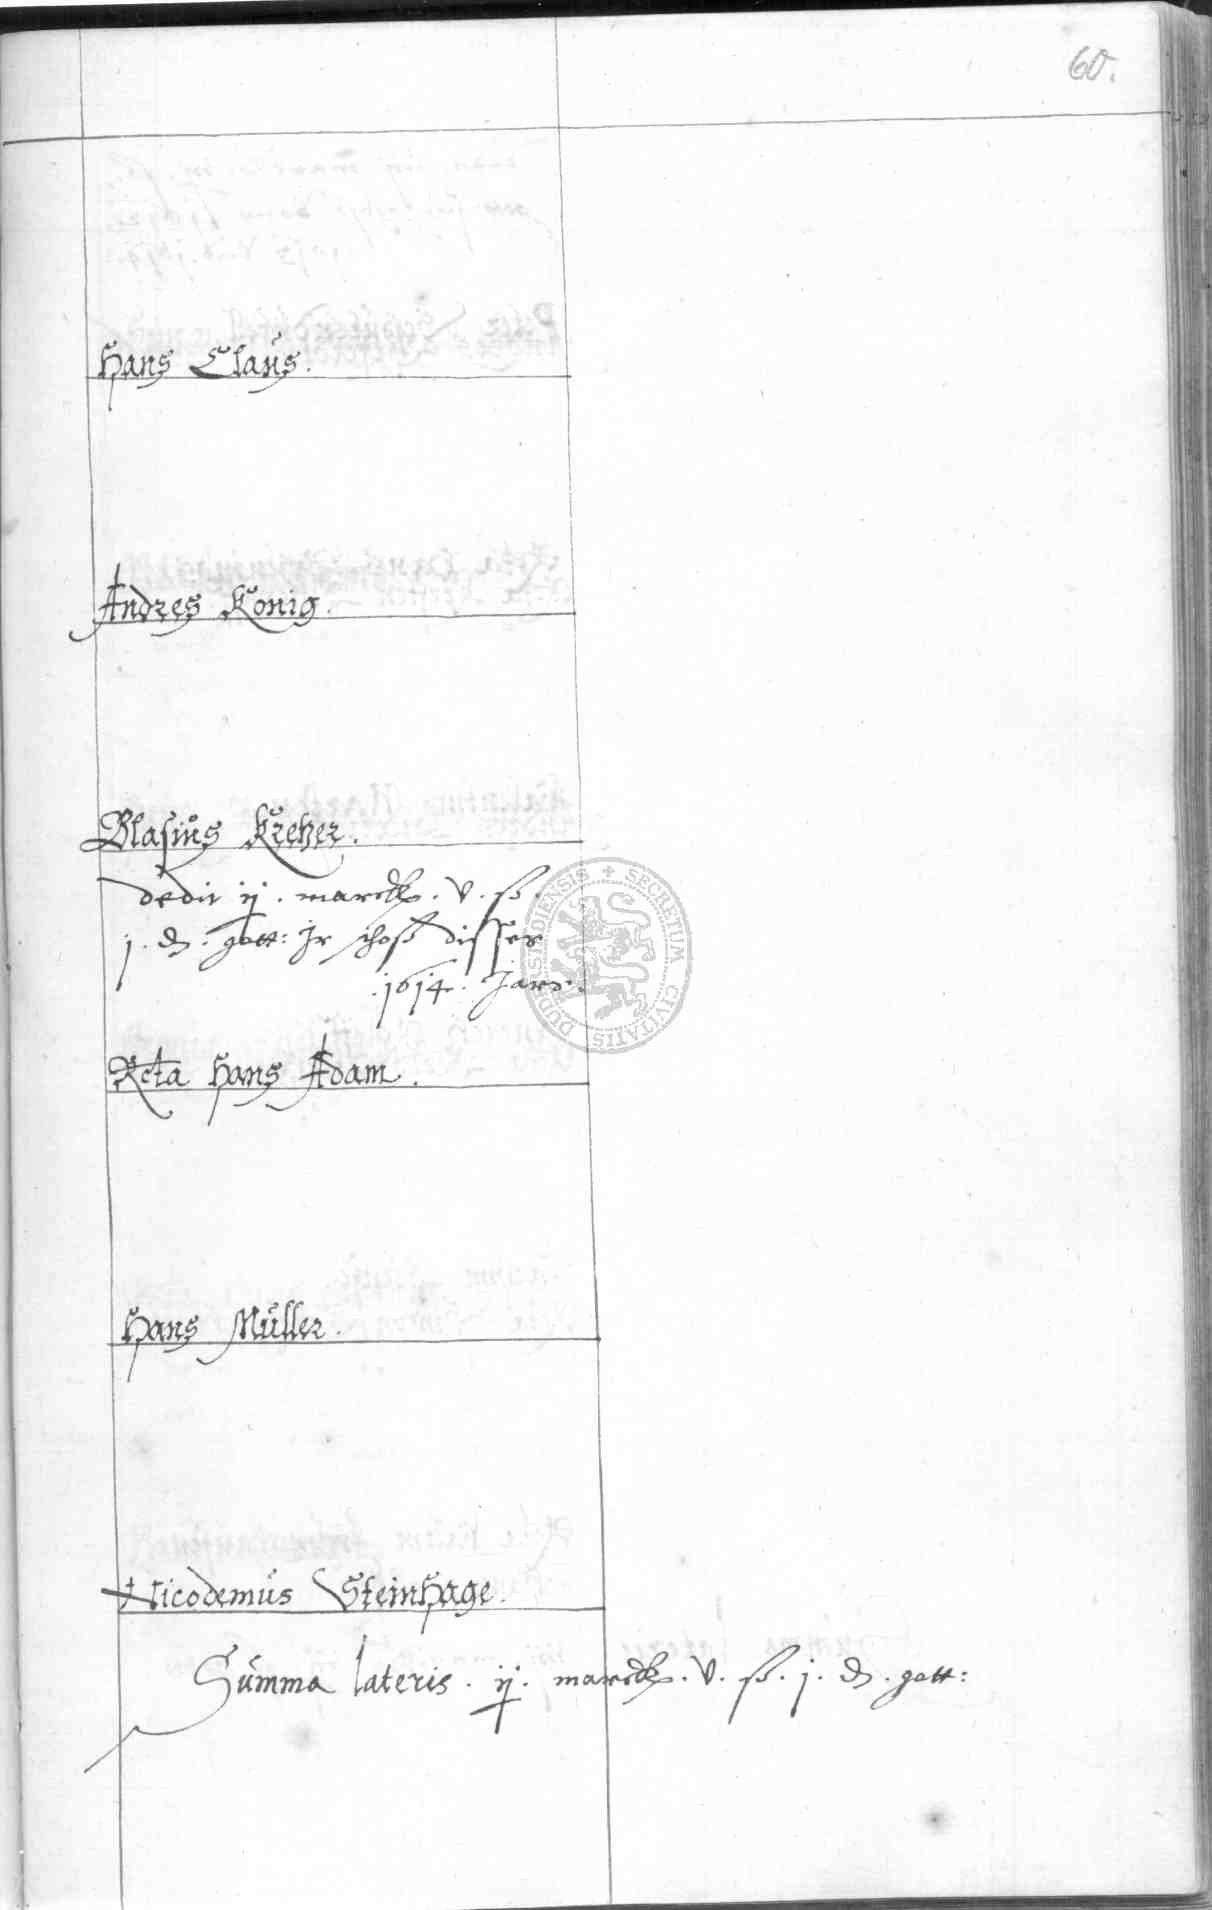 60.
Hans Claus.
Andres Konig.
Blasius Kreher.
dedit ij. marck. v. ß.
j. d. gott: Jr schoß disser
.1614. Jars.
Rcta Hans Adam.
Hans Müller.
Nicodemus Steinhage.
Summa lateris. ij. marck. v. ß. j. d. gott:
SECRETUM CIVITATIS DUDERSTADIENSIS